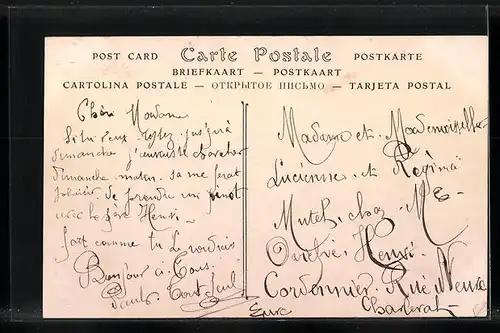 POST CARD Carte Postale POSTKARTE
BRIEFKAART — POSTKAART
CARTOLINA POSTALE — ОТКРЫТОЕ ПИСЬМО — TARJETA POSTAL
Chère Madame
Si tu veux rester jusqu'à
dimanche j'envairte chercher
dimanche matin. sa me ferat
plaisir de prendre un pinot
avec le père Henri
fait comme tu le voudrais
Bonjour à Tous.
Paul Tout Seul
Madame et Mademoiselle
Lucienne et Régina
Mutel, chez Mr
Henri
Cordonnier Rue Neuve
Charleval
Eure